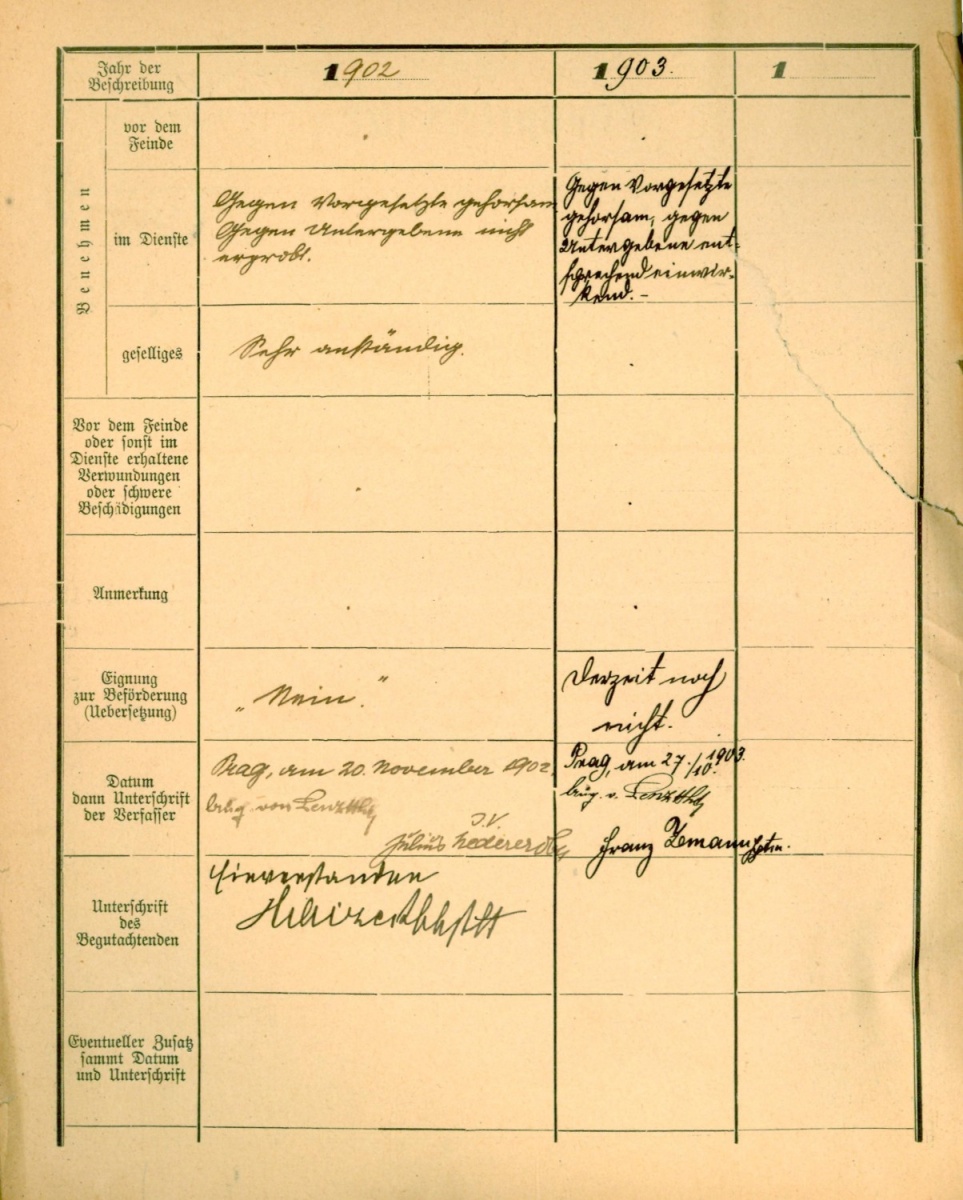 Jahr der
Beschreibung
1902
1903.
1
Benehmen
vor dem
Feinde
im Dienste
Gegen Vorgesetzte gehorsam
Gegen Untergebene nicht
erprobt.
Gegen Vorgesetzte
gehorsam, gegen
Untergebene ent-
sprechend einwir-
kend. –
geselliges
Sehr anständig.
Vor dem Feinde
oder sonst im
Dienste erhaltene
Verwundungen
oder schwere
Beschädigungen
Anmerkung
Eignung
zur Beförderung
(Uebersetzung)
„Nein.“
Derzeit noch
nicht.
Datum
dann Unterschrift
der Verfasser
Prag, am 20. November 1902.
von
J.V.
Julius Lederer
Prag, am 27./10. 1903.
v.
Franz Zemann Hptm.
Unterschrift
des
Begutachtenden
Einverstanden
Eventueller Zusatz
sammt Datum
und Unterschrift